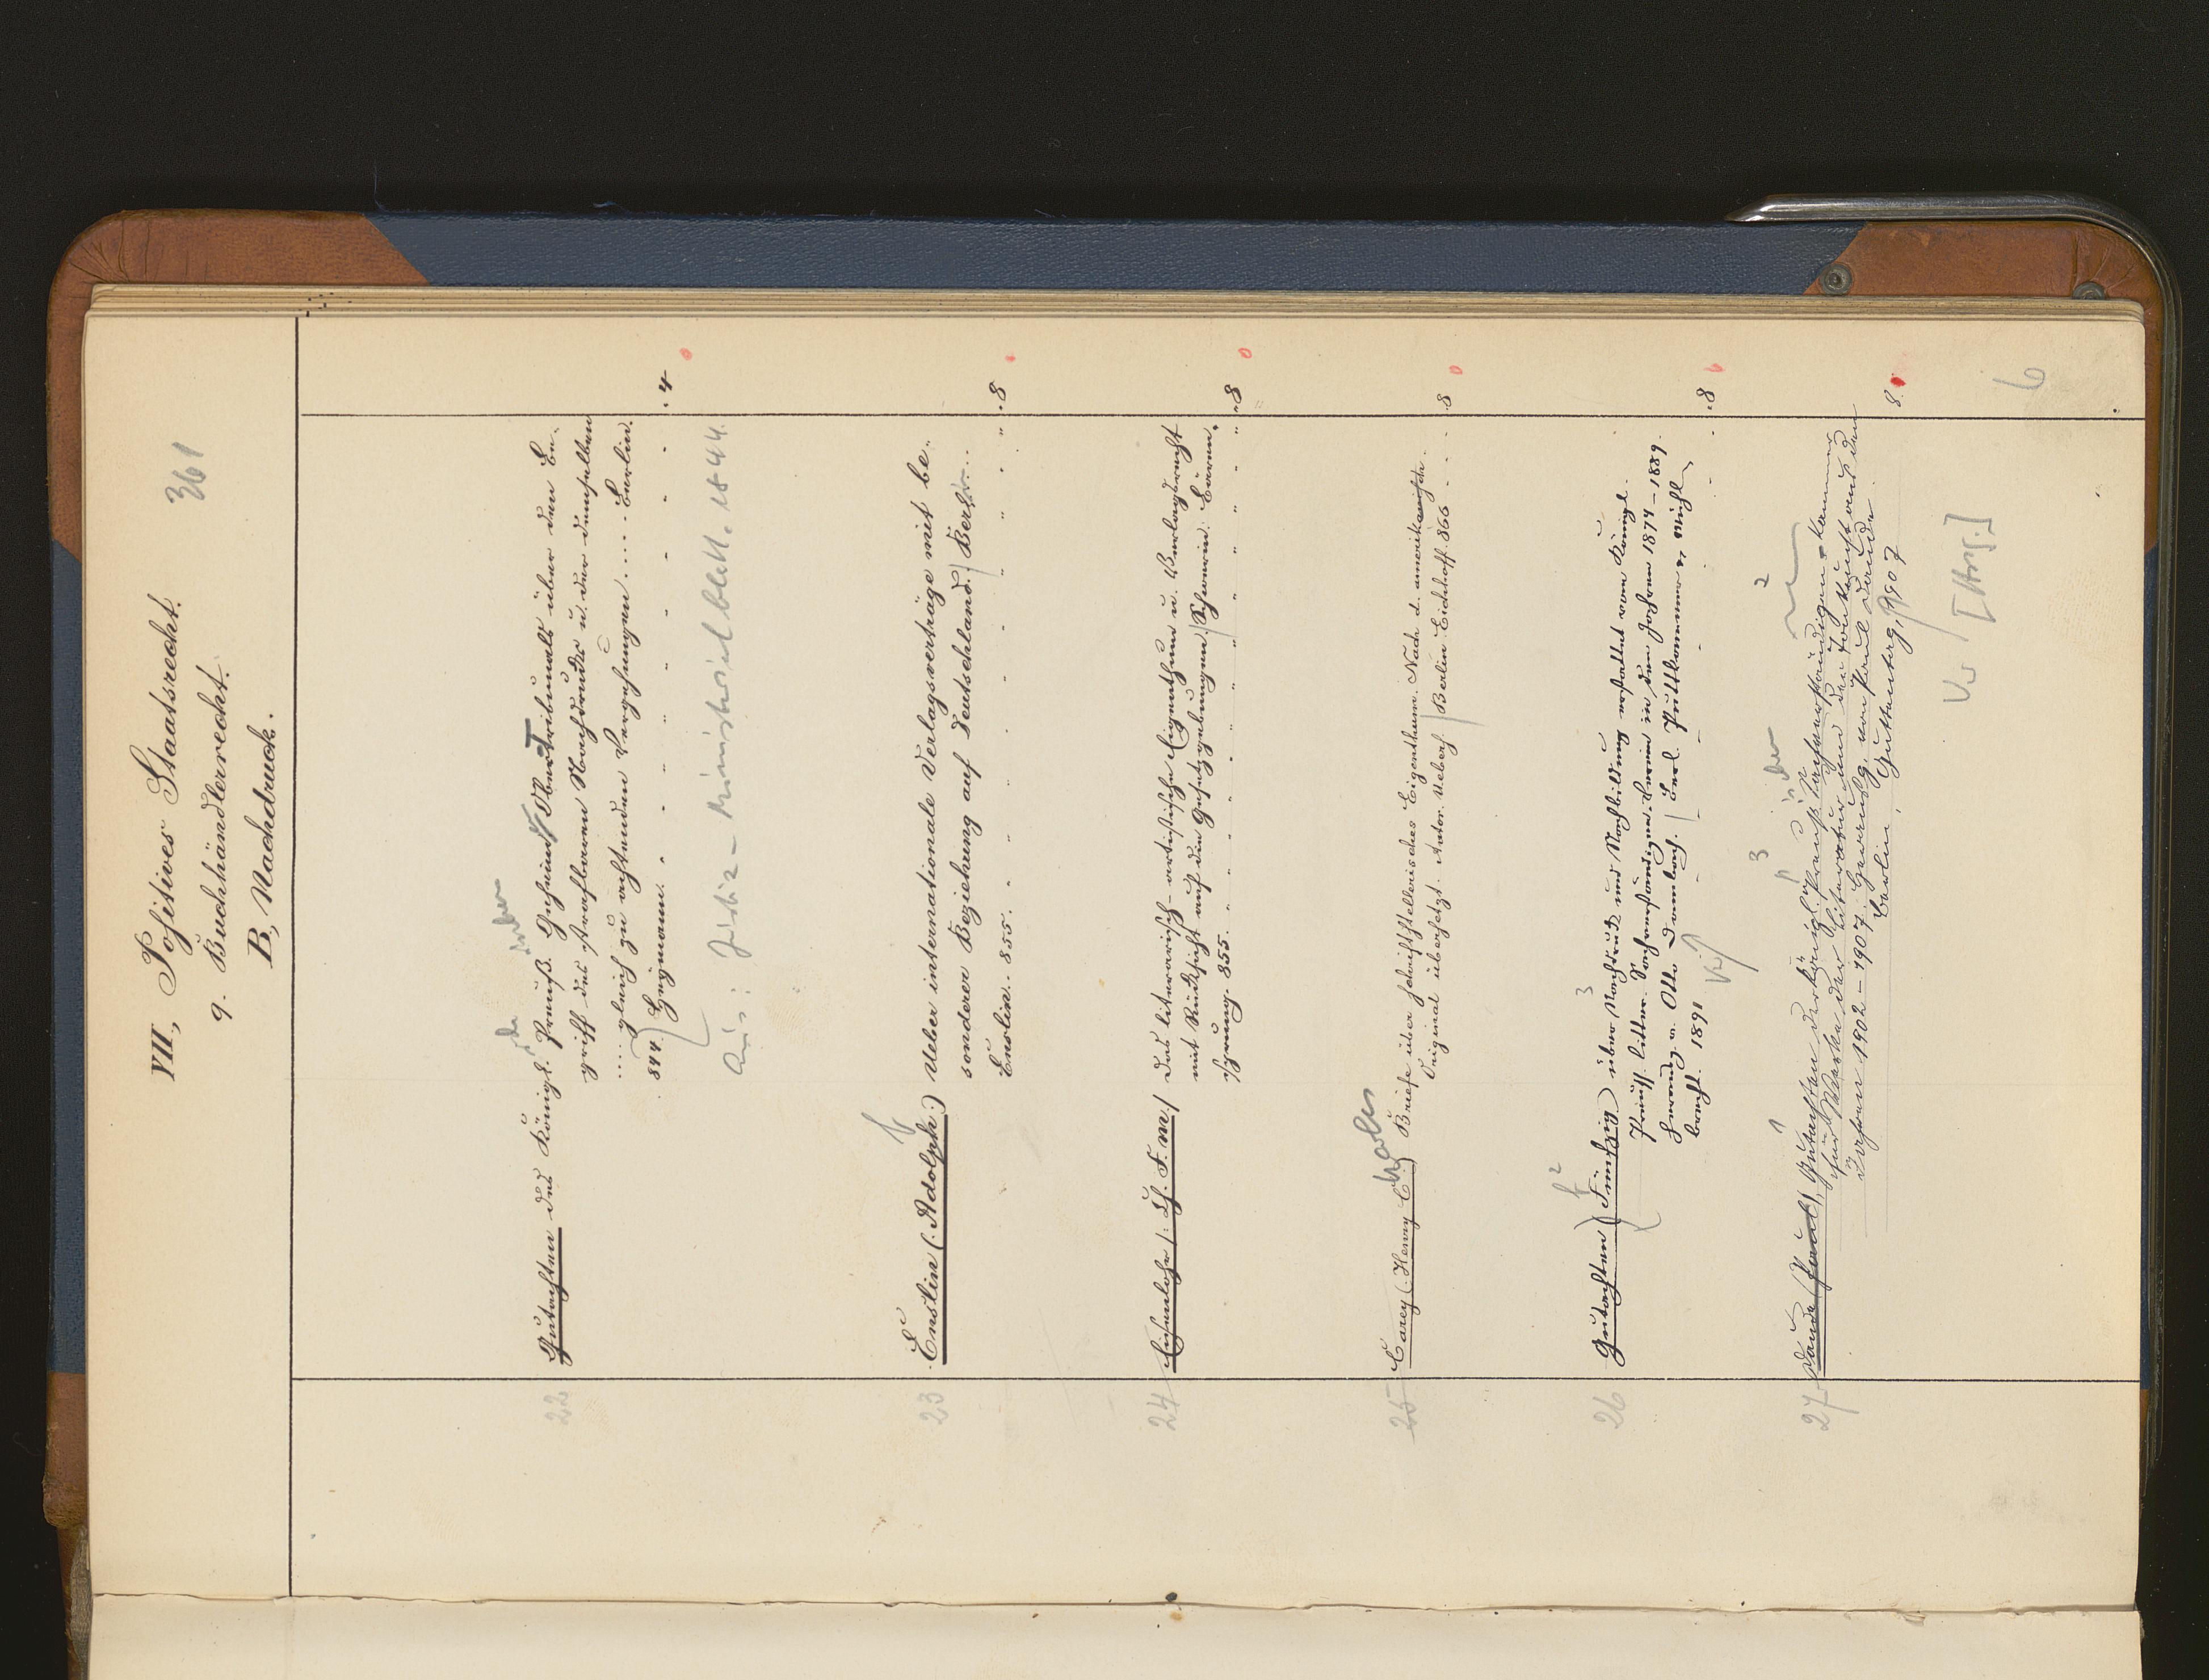 VII, Positives Staatsrecht.
9. Buchhändlerrecht.
B, Nachdruck.
361
22 Gutachten des Königl. Preuß. Geheimen Obertribunals über den Be-
griff des strafbaren Nachdrucks u. der demselben
.... gleich zu achtenden Vergehungen .... Berlin.
844. Heymann. 4
Aus: Justiz-Ministerialblatt. 1844.
23 Enslin (: Adolph:) Ueber internationale Verlagsverträge mit be-
sonderer Beziehung auf Deutschland. Berlin.
Enslin. 855. 8
24 Eisenlohr /: Ch. F. M:/ Das literarisch-artistische Eigenthum u. Verlagsrecht
mit Rücksicht auf die Gesetzgebungen. Schwerin. Bären-
sprung. 855. 8
25 Carey (: Henry C:) Briefe über schriftstellerisches Eigenthum. Nach d. amerikanischen
Original übersetzt. Autor. Uebers. Berlin. Eichhoff. 866 8
26 Gutachten (Fünfzig) über Nachdruck und Nachbildung erstattet vom Königl.
Preuß. litter. Sachverständigen-Verein in den Jahren 1874-1889.
Herausg. v. Otto Dambach. Berl. Puttkammer u. Mühl-
brecht. 1891 8
27 Daude (Paul), Gutachten der Königl. Preuß. Sachverständigen-Kammer
für Werke der Literatur und der Tonkunst aus den
Jahren 1902-1907. Herausg. von Paul Daude.
Berlin, Guttentag, 1907 8.
[Hrsg.]
6